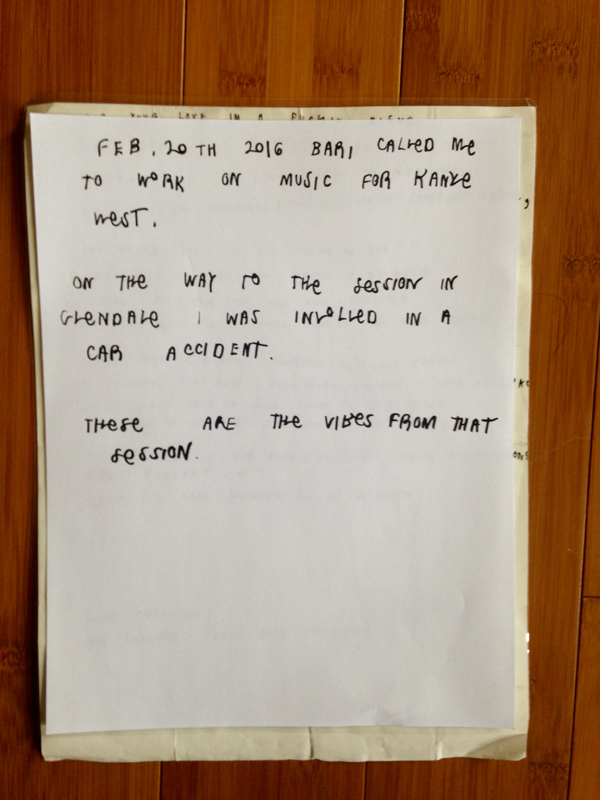 FEB. 20TH 2016 BARI CALLED ME
TO WORK ON MUSIC FOR KANYE
WEST.
ON THE WAY TO THE SESSION IN
GLENDALE I WAS INVOLLED IN A
CAR ACCIDENT.
THESE ARE THE VIBES FROM THAT
SESSION.